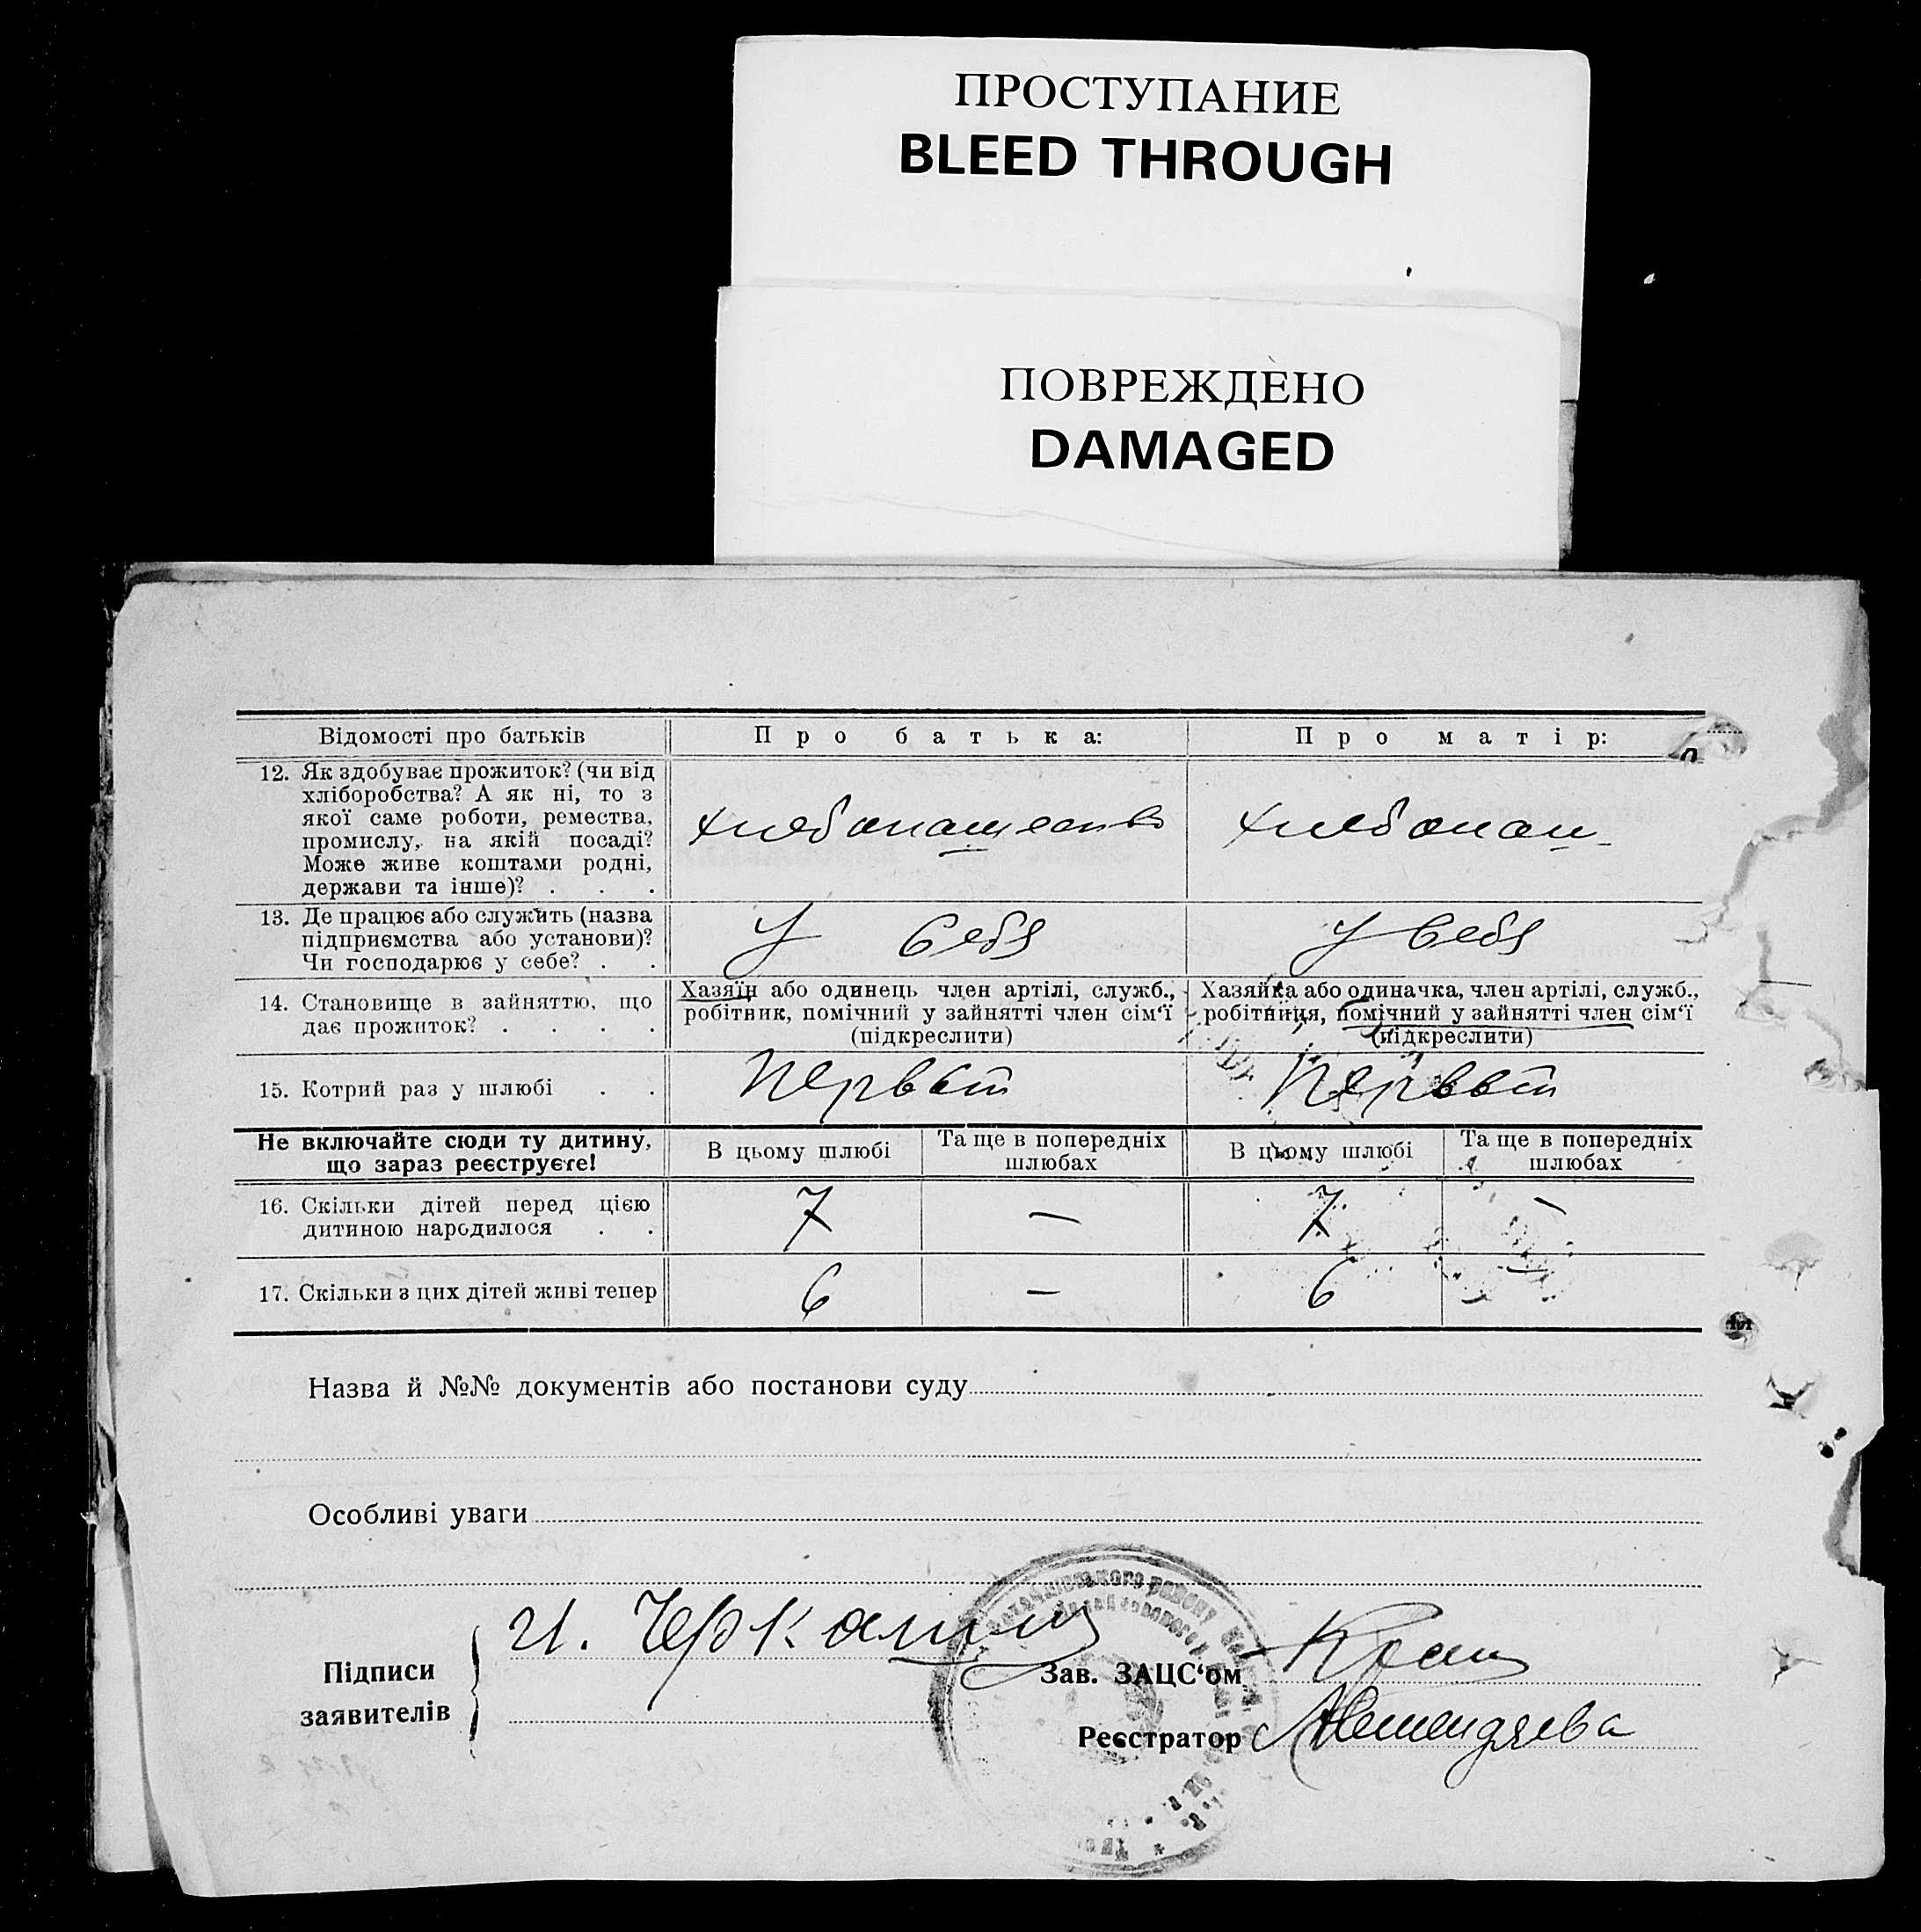 ПРОСТУПАНИЕ
BLEED THROUGH
ПОВРЕЖДЕНО
DAMAGED
Відомості про батьків
Про батька:
Про матір:
12. Як здобуває прожиток? (чи від
хліборобства? А як ні, то з
якої саме роботи, ремества,
промислу, на якій посаді?
Може живе коштами родні,
держави та інше)? . . .
хлебопашество
хлебопаш
13. Де працює або служить (назва
підприємства або установи)?
Чи господарює у себе? . .
У себя
У себя
14. Становище в зайняттю, що
дає прожиток? . . . .
Хазяїн або одинець член артілі, служб.,
робітник, помічний у зайнятті член сім‘ї
(підкреслити)
Хазяйка або одиначка, член артілі, служб.,
робітниця, помічний у зайнятті член сім‘ї
(підкреслити)
15. Котрий раз у шлюбі . .
Первый
Первый
Не включайте сюди ту дитину,
що зараз реєструєте!
В цьому шлюбі
Та ще в попередніх
шлюбах
В цьому шлюбі
Та ще в попередніх
шлюбах
16. Скільки дітей перед цією
дитиною народилося . .
7 — 7 —
17. Скільки з цих дітей живі тепер
6 — 6
Назва й №№ документів або постанови суду
Особливі уваги
Підписи
заявителів
И. Черкашин
Зав. ЗАЦС‘ом
Реєстратор
району